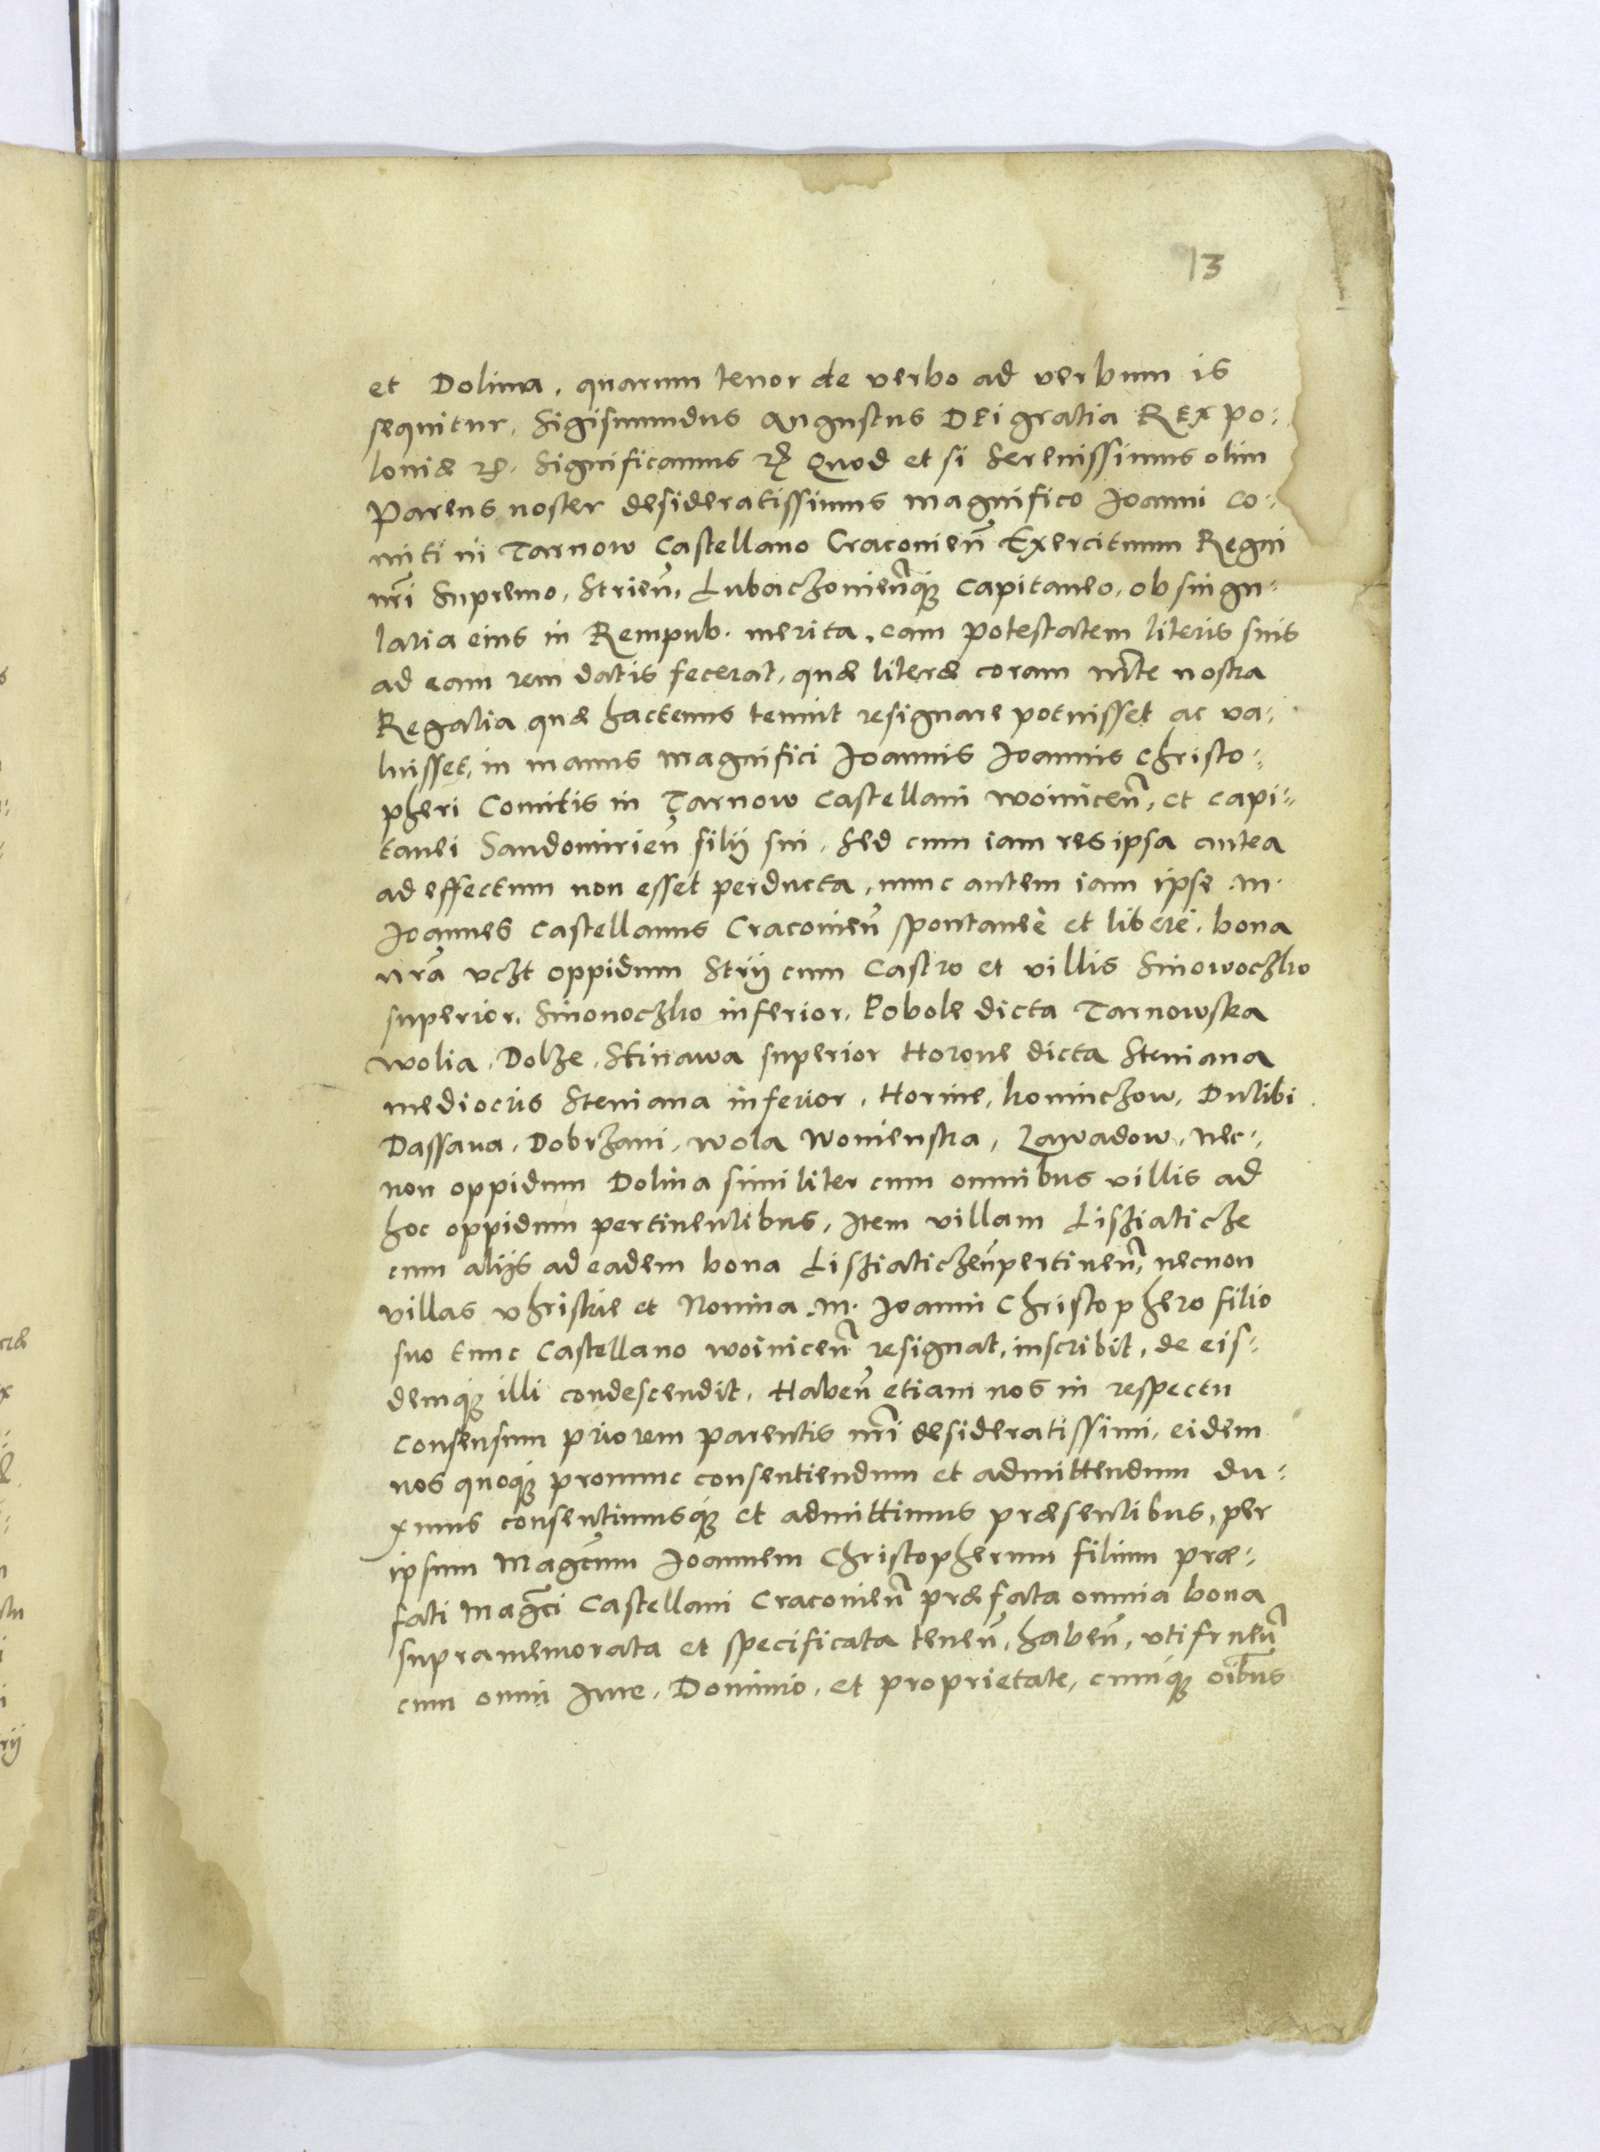 13
et Dolina, quarum tenor de verbo ad verbum is
sequitur. Sigismundus Augustus DEi gratia REX po:
loniæ etc. Significamus etc. Quod et si Serenissimus olim
Parens noster desideratissimus magnifico Joanni Co:
miti in Tarnow Castellano Cracovieñ Exercituum Regni
nr̃i Supremo, Strieñ, Lubaczovieñq̃ Capitaneo, ob singu:
laria eius in Rempub. merita, eam potestatem literis suis
ad eam rem datis fecerat, quæ literæ coram mt̃e nostra
Regalia quæ hactenus tenuit resignare potuisset ac va:
luisset, in manus magnifici Joannis Joannis Christo:
pheri Comitis in Tarnow Castellani woiniceñ, et capi:
tanei Sandomirieñ filij sui. Sed cum iam res ipsa antea
ad effectum non esset perducta, nunc autem iam ipse .m.
Joannes Castellanus Cracovieñ spontaneè et liberè, bona
nr̃a vczt oppidum Strij cum Castro et villis Sinowoczko
superior, Sinonoczko inferior, Pobole dicta Tarnowska
wolia, Dolze, Stinawa superior Horone dicta Steniana
mediocris Steniana inferior, Horine, koninczow, Dulibi
Dassava, Dobrzani, wola wonienska, Zawadow, nec:
non oppidum Dolina similiter cum omnibus villis ad
hoc oppidum pertinentibus, Item villam Lisziaticze
cum alijs ad eadem bona Lisziaticzeñ pertineñ, necnon
villas vhriskie et Nonina .m. Joanni Christophero filio
suo tunc Castellano woiniceñ resignat, inscribit, de eis:
demq̃ illi condescendit. Habeñ etiam nos in respectu
consensum priorem parentis nr̃i desideratissimi, eidem
nos quoq̃ pronunc consentiendum et admittendum du:
ximus consentimusq̃ et admittimus præsentibus, per
ipsum Magc̃um Joannem Christopherum filium præ:
fati Magc̃i Castellani Cracovieñ præfata omnia bona
supramemorata et specificata teneñ, habeñ, vtifrueñ
cum omni Iure, Dominio, et proprietate, cumq̃ oĩbus